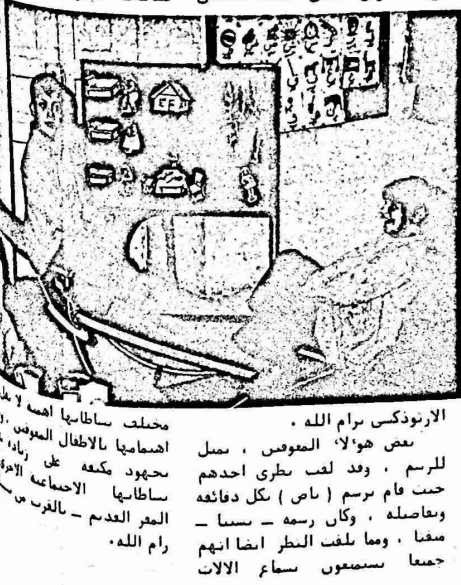 الارثوذكسى برام الله .
بعض هو'لا' المعوقين ، يميل
للرسم ، وقد لفت نظرى احدهم
حيث قام برسم ( باص ) بكل دقائقه
وتفاصيله ، وكان رسمه ــ نسبيا ــ
متقنا ، ومما يلفت النظر ايضا انهم
جميعا يستمتعون بسماع الالات
مختلف نشاطاتها اهمية لا
اهتمامها بالاطفال المعوقين ،
بجهود مكثفة على زيادة
نشاطاتها الاجتماعية الاخرى
المقر القديم ــ بالقرب من
رام الله .